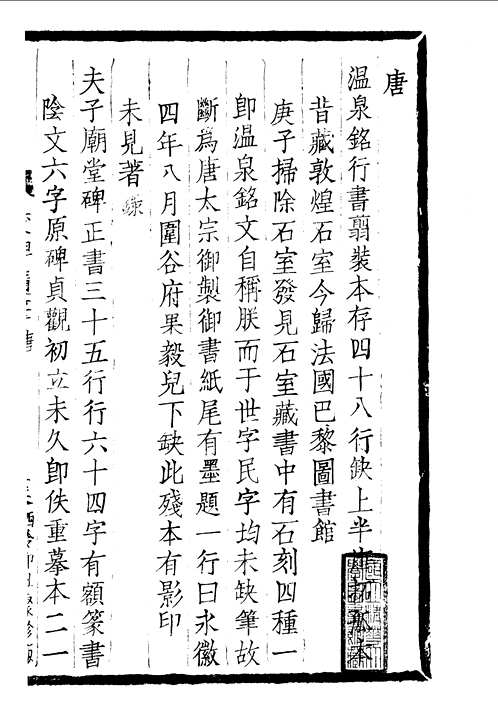 唐
温泉銘行書翦裝本存四十八行缺上半
孤本
昔藏敦煌石室今歸法國巴黎圖書館
庚子掃除石室發見石室藏書中有石刻四種一
卽温泉銘文自稱朕而于世字民字均未缺筆故
斷爲唐太宗御製御書紙尾有墨題一行曰永徽
四年八月圍谷府果毅兒下缺此殘本有影印
未見著錄
夫子廟堂碑正書三十五行行六十四字有額篆書
陰文六字原碑貞觀初立未久卽佚重摹本二一